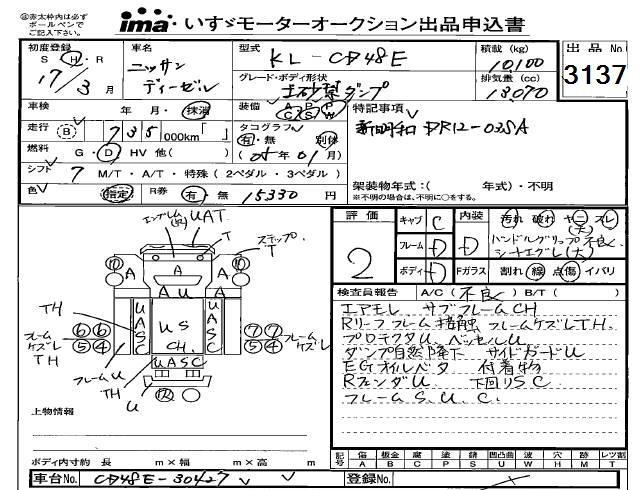 ◎赤太枠内は必ず
ボールペンで
ご記入下さい。
ima・いすゞモーターオークション出品申込書
初度登録
S・H・R
17/3月
車名
ニッサン
ディーゼル
型式
KL-CD48E
グレード・ボディ形状
土砂禁ダンプ
積載 (kg)
10,100
排気量 (cc)
13,070
出品No
3137
車検 年・月・抹消
装備 A P P C S W
特記事項
新明和 DR12-03SA
走行 B 735,000km「 」
タコグラフ
有・無 別体
(05年01月)
燃料 G・D・HV 他( )
シフト 7 M/T・A/T・特殊(2ペダル・3ペダル)
架装物年式:( 年式)・不明
※不明の場合は、不明に○をする。
色 指定 R券 有・無 15330円
評価
2
キャブ C
フレーム D
ボディ D
内装 D
汚れ 破れ ヤニ スレ
(大)
ハンドルグリップ不良
シートエグレ(大)
Fガラス 割れ 線 点傷 イバリ
検査員報告 A/C(不良)B/T( )
エアモレ サブフレームCH
Rリーフフレーム接触 フレームケズレT.H.
プロテクタU ベッセルU
ダンプ自然降下 サイドガードU
EGオイルベタ 付着物
RフェンダU 下回りSC
フレームS.U.C.
エンブレム
(欠)
UAT
T
ステップ
T
⑩
⑩
A
A
A
AU
TH
UASC
US
CH
UASC
TH
フレーム
ケズレ
TH
⑥⑥
⑤④
⑦⑦
⑤④
フレーム
ケズレ
フレームU
UASC
TH
U
欠
上物情報
ボディ内寸約 長 m×幅 m×高 m
記号 傷 板金 腐 塗 錆 凹凸曲 波 穴 跡 レツ割
A B C P S U W H M T
車台No. CD48E-30427
登録No.